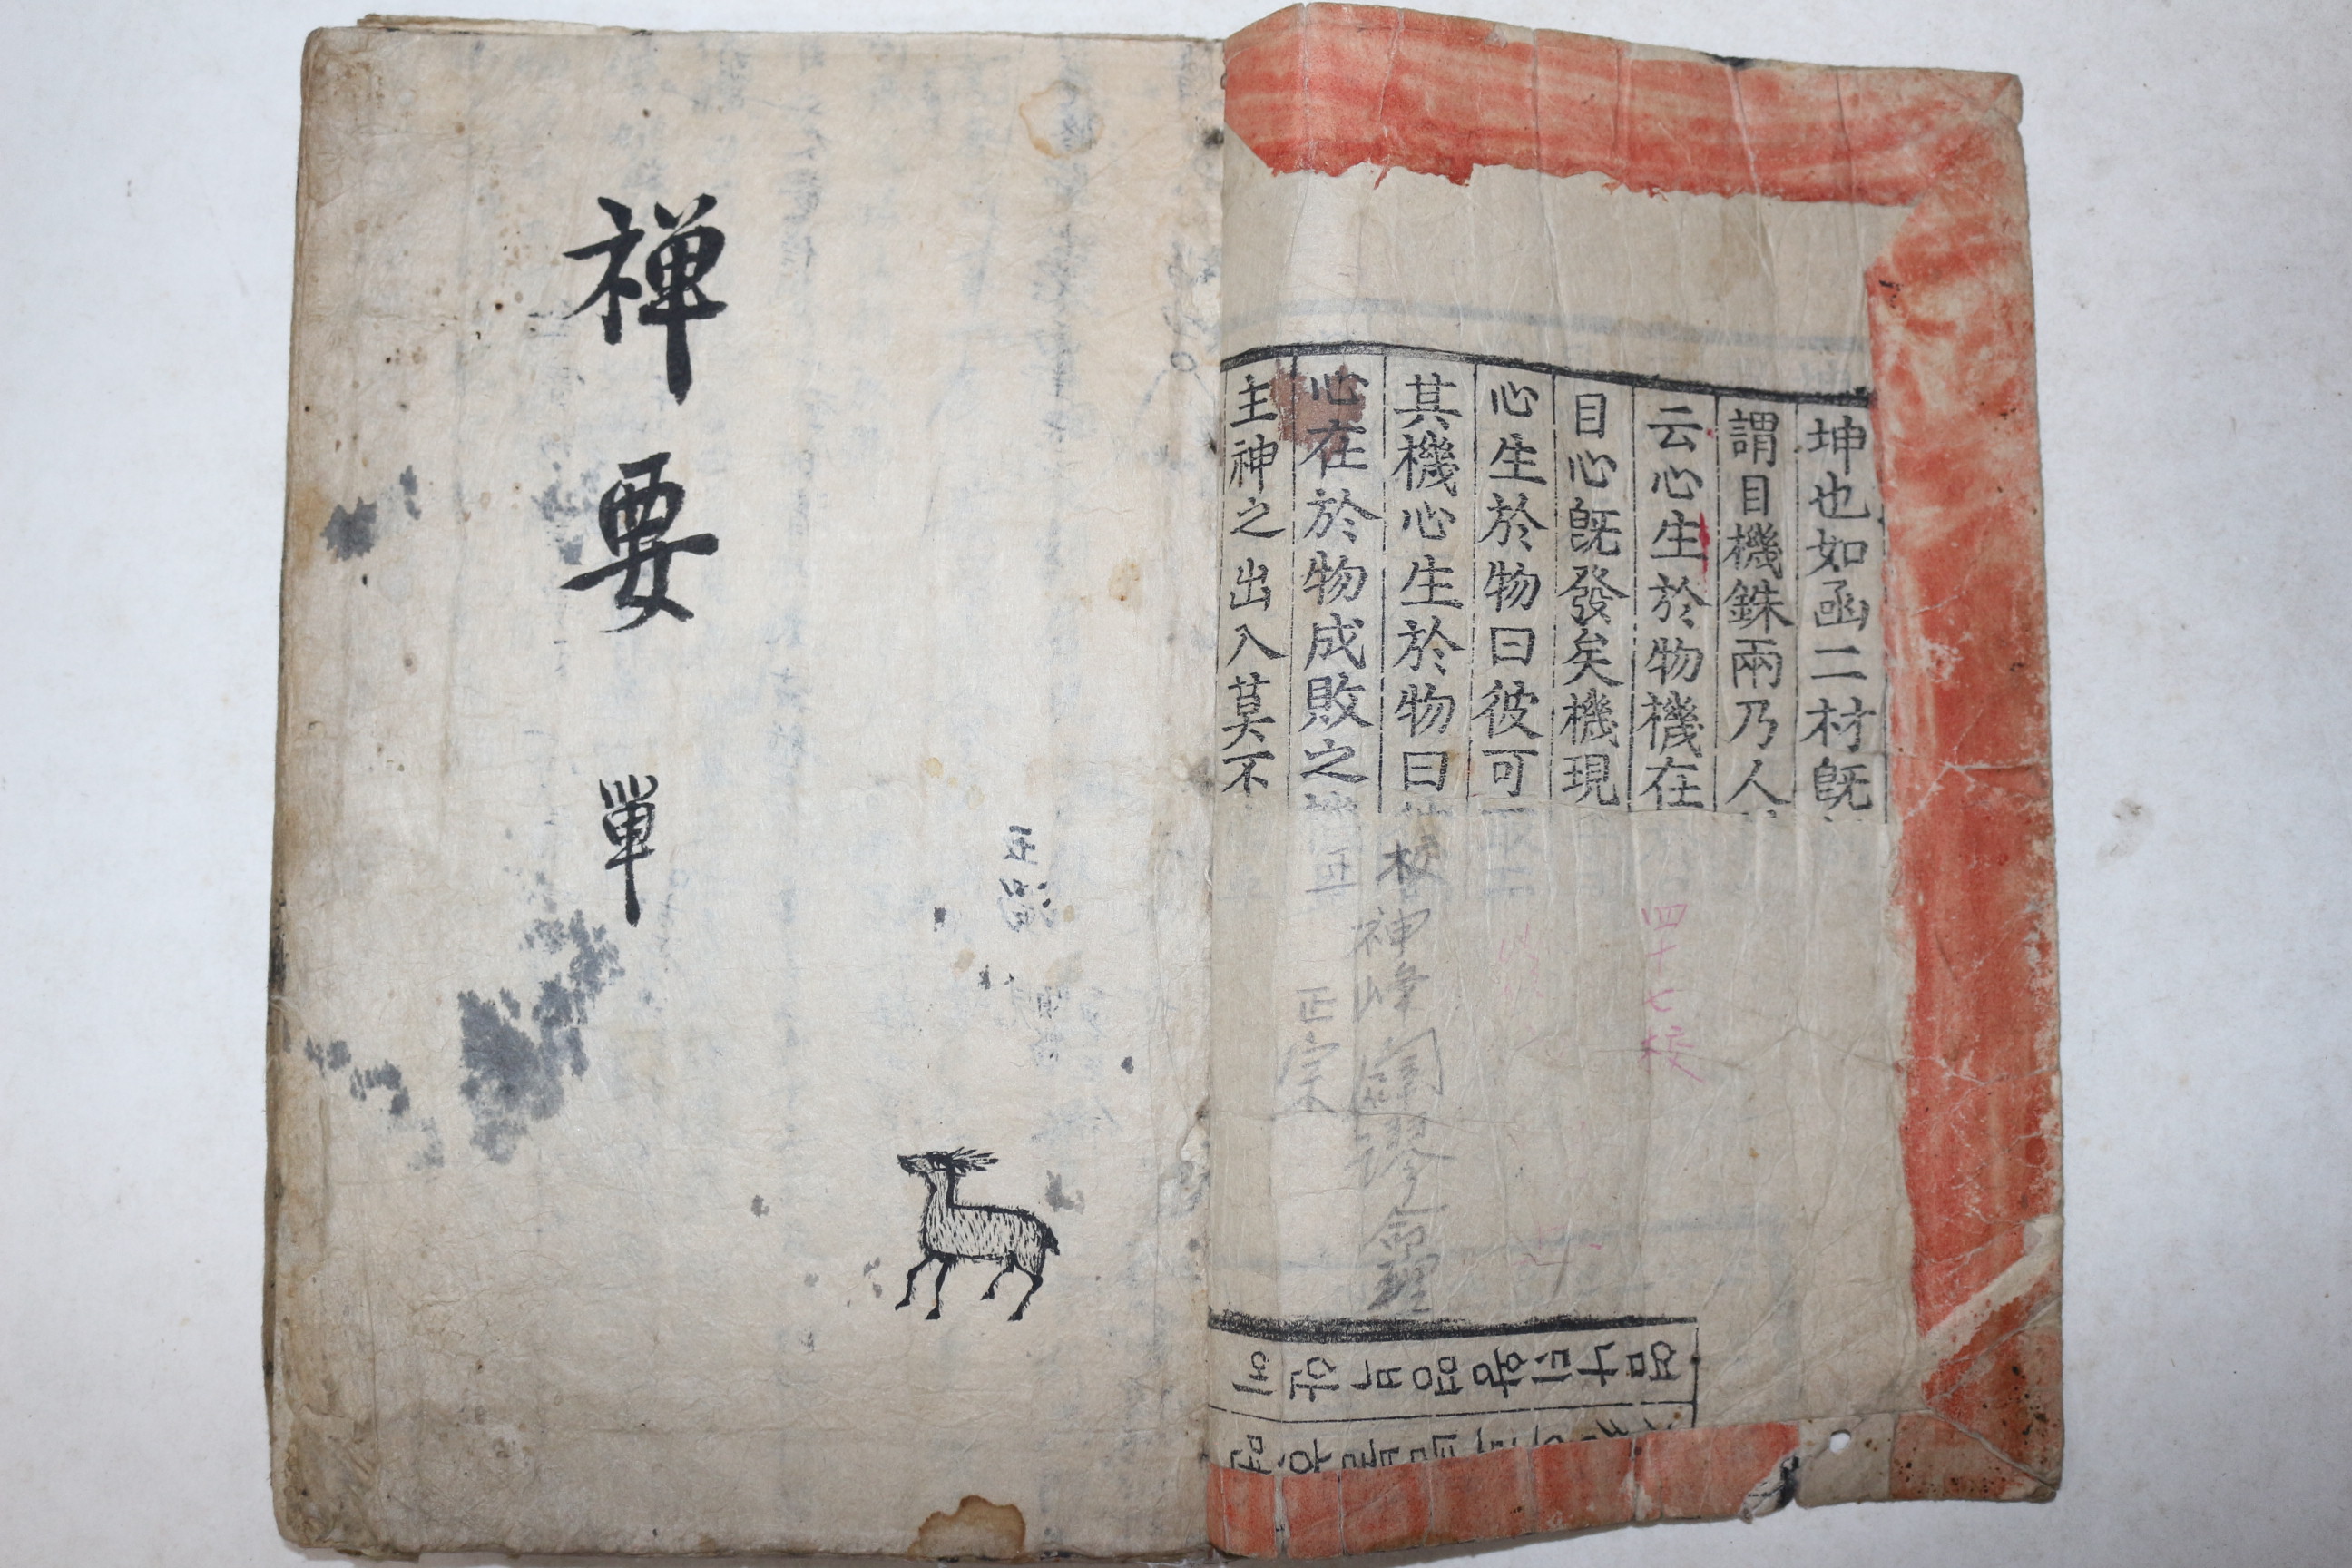 坤也如函二材旣
謂目機銖兩乃人
云心生於物機在
目心旣發矣機現
心生於物曰彼可
其機心生於物曰
心在於物成敗之
主神之出入莫不
四十七校
校
神峰闢謬命理
正宗
禅要 単